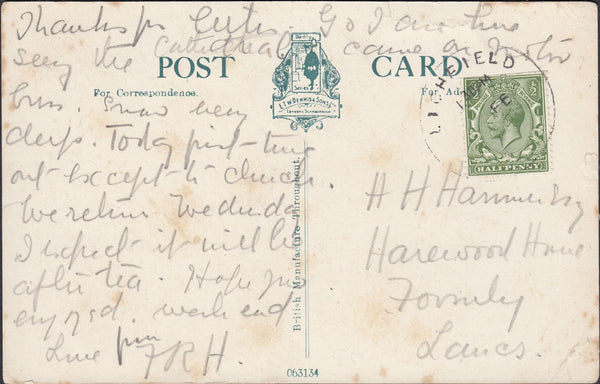 Thanks for letter. So I am here
seeing the Cathedral came on motor
POST CARD
For Correspondence.
For Ad
E.T.W. DENNIS & SONS LTD
LONDON & SCARBORO
bus. Snow very
deep. Today first time
out except to church.
We return Wednesday
I expect it will be
after tea. Hope you
enjoyed weekend
Love from
F R H.
British Manufacture Throughout.
LICHFIELD
FE
HALFPENNY
H H
Harewood House
Formby
Lancs.
063134